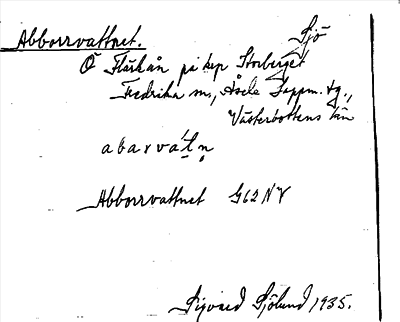 Abborrvattnet. Sjö
Ö Flärkån på kep Storberget
Fredrika sn, Åsele Lappm. tg.,
Västerbottens län
abarvátn
Abborrvattnet G62NV
Sigvard Sjölund 1935.